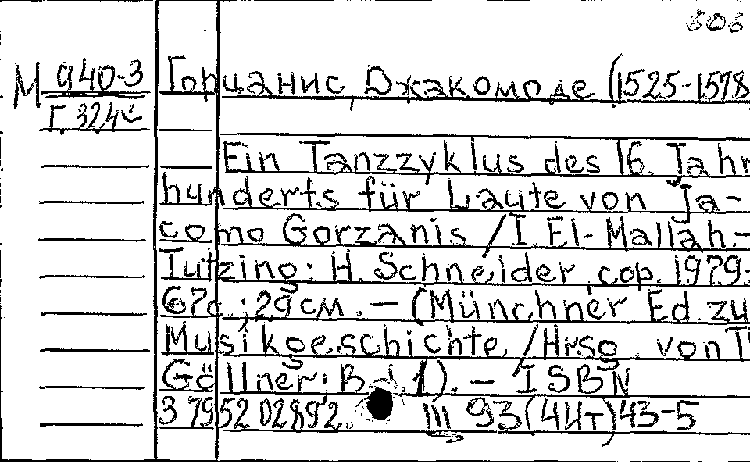 808
М 940-3 Горцанис, Джакомо де (1525-1578
Г. 324
Ein Tanzzyklus des 16. Jahr
hunderts für Laute von Ja-
como Gorzanis / I. El-Mallah.-
Tutzing: H. Schneider, cop. 1979.
67с.; 29см. — (Münchner Ed. zu
Musikgeschichte / Hrsg. von T
Göllner; B 1). — ISBN
3 7952 0289 2. III 93(4Ит)43-5